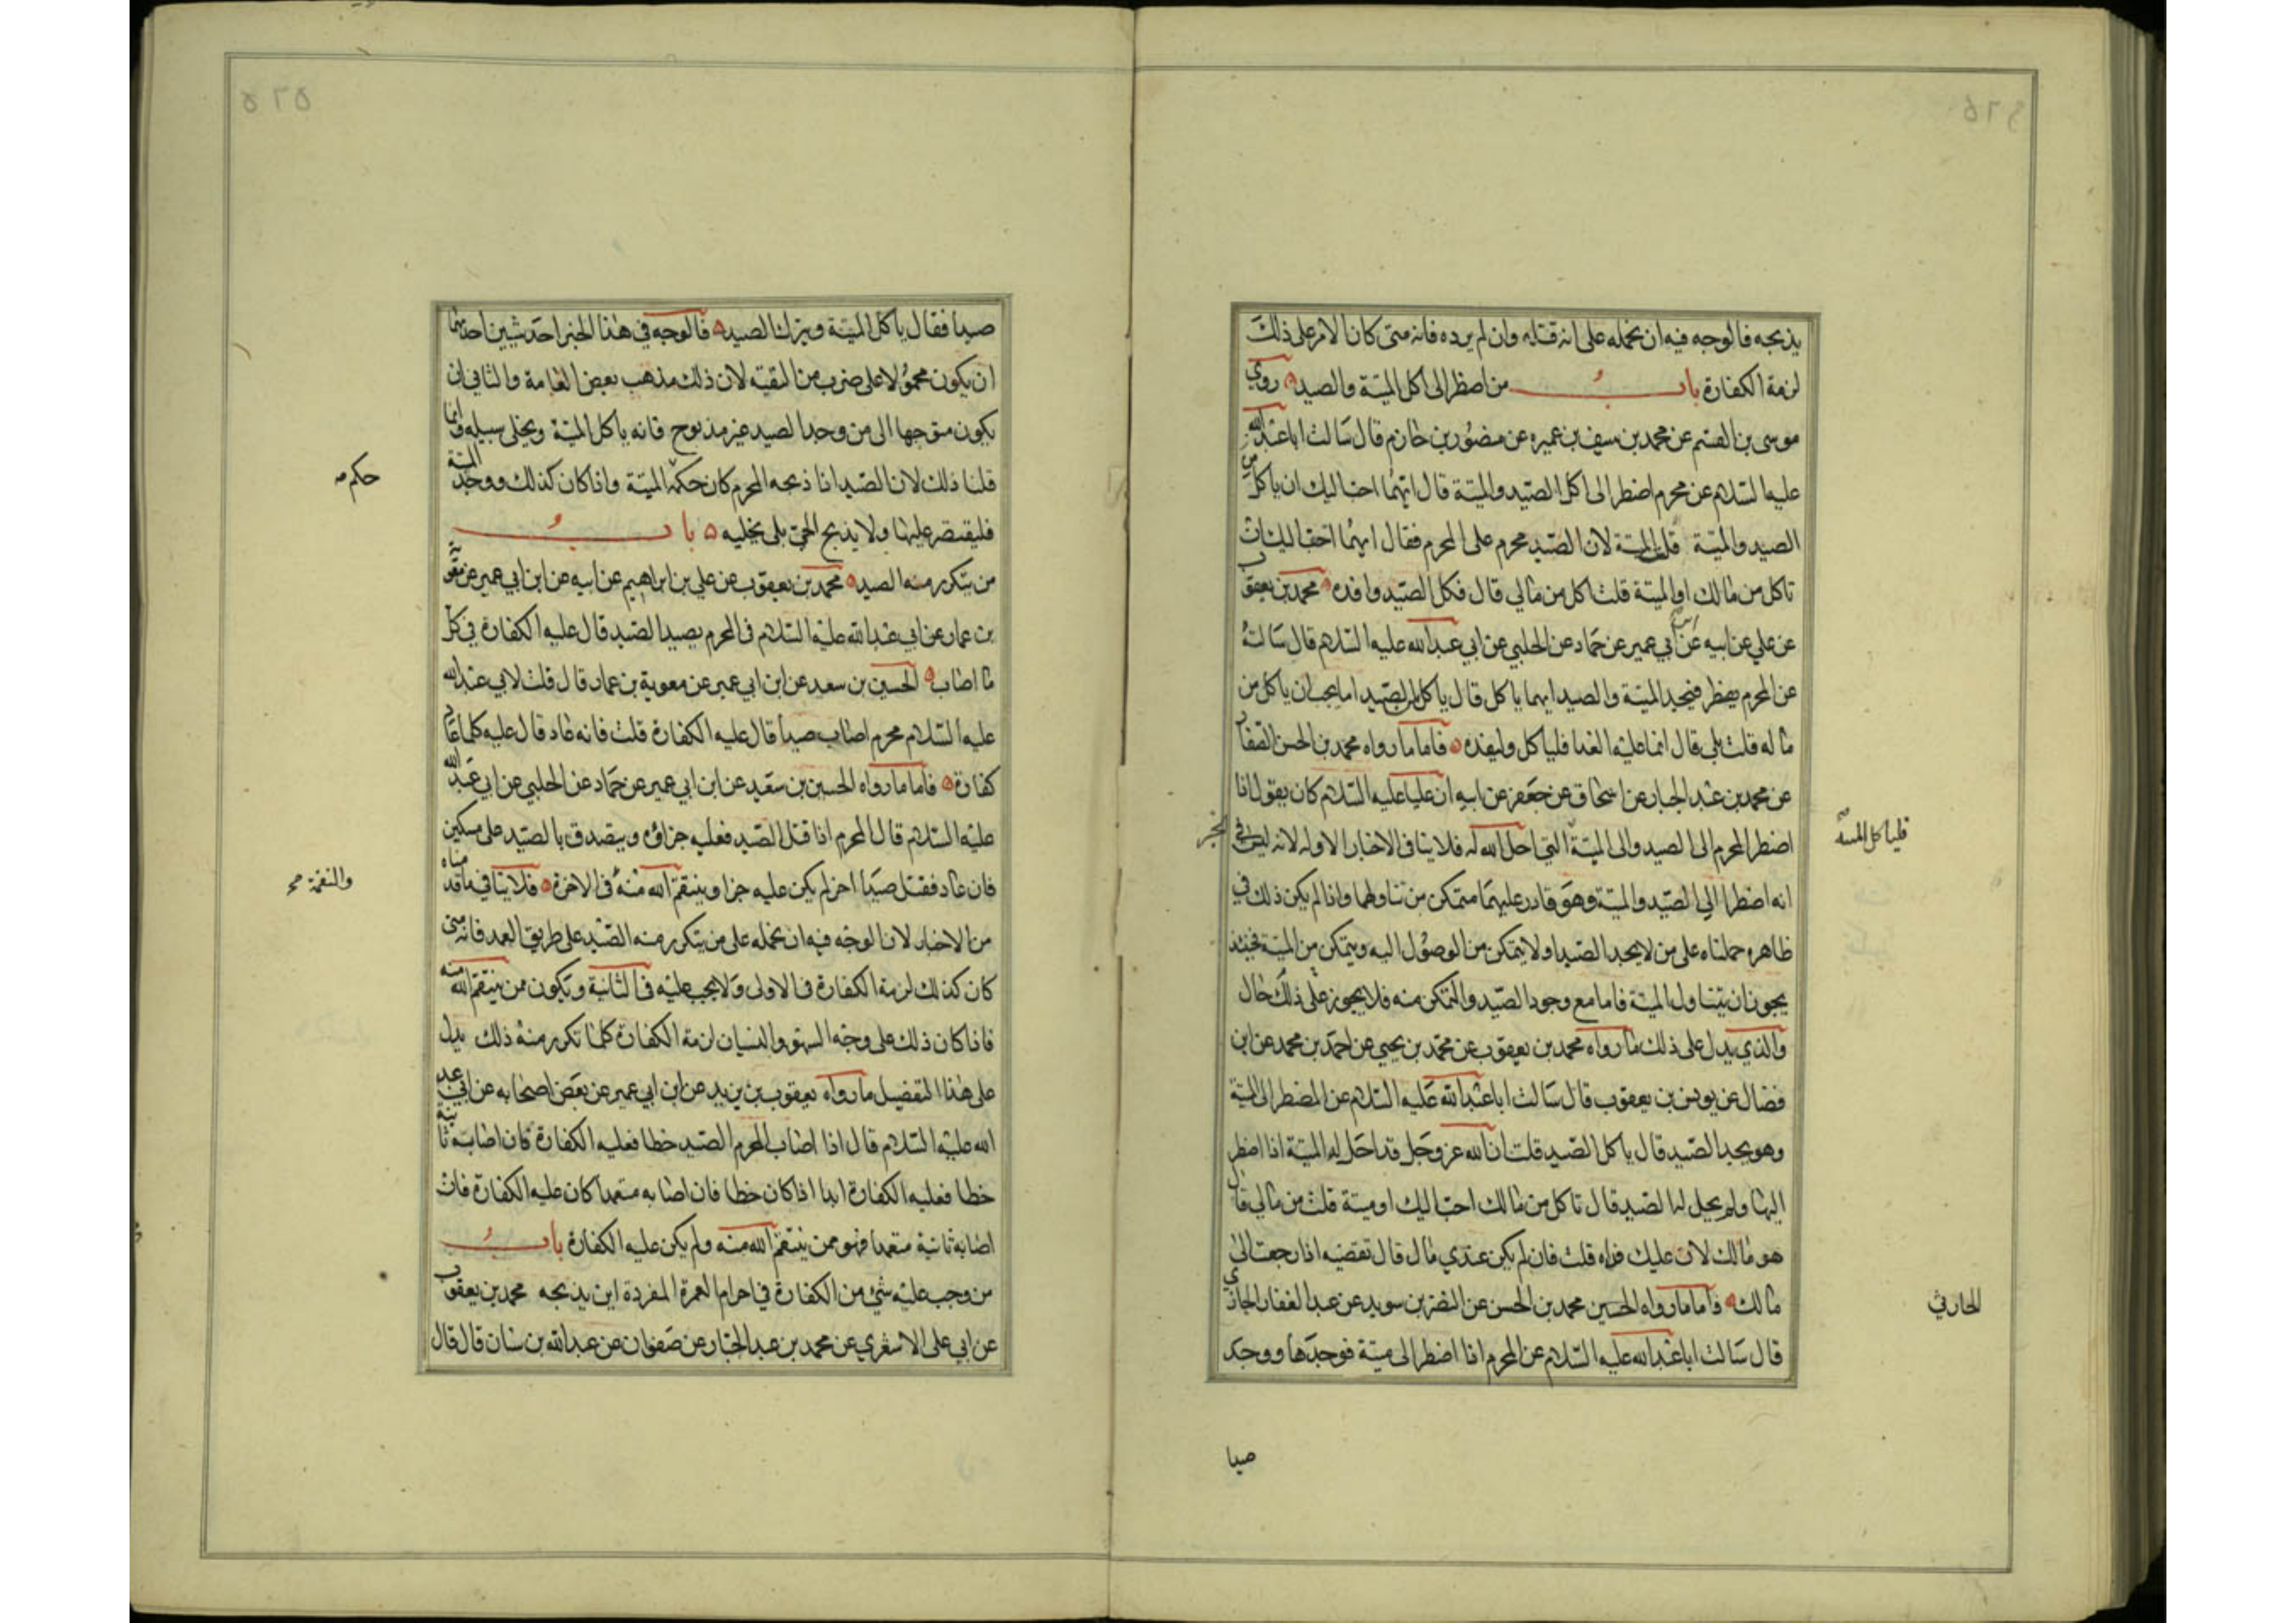 يذبحه فالوجه فيه ان نحمله على انه قتله وان لم يرده فانه متى كان الامر على ذلك
لزمه الكفارة باب من اضطر الى اكل الميتة والصيد روى
موسى بن القسم عن محمد بن سيف بن عميره عن منصور بن حازم قال سالت ابا عبد الله
عليه السلام عن محرم اضطر الى اكل الصيد والميتة قال ايهما احب اليك ان ياكل من
الصيد والميتة قلت الميتة لان الصيد محرم على المحرم فقال ايهما احب اليك ان
تاكل من مالك او الميتة قلت اكل من مالي قال فكل الصيد وافده محمد بن يعقوب
عن علي عن ابيه عن ابن ابي عمير عن حماد عن الحلبي عن ابي عبد الله عليه السلام قال سالته
عن المحرم يضطر فيجد الميتة والصيد ايهما ياكل قال ياكل من الصيد اما يحب ان ياكل من
ماله قلت بلى قال انما عليه الفدا فلياكل وليفده فاما ما رواه محمد بن الحسن الصفار
عن محمد بن عبد الجبار عن اسحاق عن جعفر عن ابيه ان عليا عليه السلام كان يقول اذا
اضطر المحرم الى الصيد والى الميتة التي احل الله له فلا ينافي الاخبار الاوله لانه ليس في
الخبر
فلياكل الميتة
انه اضطر الى الصيد والميتة وهو قادر عليهما متمكن من تناولهما واذا لم يكن ذلك في
ظاهره حملناه على من لا يجد الصيد او لا يتمكن من الوصول اليه ويتمكن من الميتة فحينئذ
يجوز ان يتناول الميتة فاما مع وجود الصيد والتمكن منه فلا يجوز على ذلك حال
والذي يدل على ذلك ما رواه محمد بن يعقوب عن محمد بن يحيى عن احمد بن محمد عن ابن
فضال عن يونس بن يعقوب قال سالت ابا عبد الله عليه السلام عن المضطر الى الميتة
وهو يجد الصيد قال ياكل الصيد قلت ان الله عز وجل قد احل له الميتة اذا اضطر
اليها ولم يحل له الصيد قال تاكل من مالك احب اليك او ميتة قلت من مالي قال
هو مالك لان عليك فداه قلت فان لم يكن عندي مال قال تقضيه اذا رجعت الى
مالك فاما ما رواه الحسين محمد بن الحسن عن النضر بن سويد عن عبد الغفار الجازي
الحارثي
قال سالت ابا عبد الله عليه السلام عن المحرم اذا اضطر الى ميتة فوجدها ووجد
صيدا
صيدا فقال ياكل الميتة ويترك الصيد فالوجه في هذا الخبر احد شيئين احدهما
ان يكون محمولا على ضرب من التقية لان ذلك مذهب بعض العامة والثاني ان
يكون متوجها الى من وجد الصيد غير مذبوح فانه ياكل الميتة ويخلى سبيله وانما
قلنا ذلك لان الصيد اذا ذبحه المحرم كان حكمه الميتة واذا كان كذلك ووجد الميتة
حكم
فليقتصر عليها ولا يذبح الحي بل يخليه باب
من تكرر منه الصيد محمد بن يعقوب عن علي بن ابراهيم عن ابيه عن ابن ابي عمير عن معوية
بن عمار عن ابي عبد الله عليه السلام في المحرم يصيد الصيد قال عليه الكفارة في كل
ما اصاب الحسين بن سعيد عن ابن ابي عمير عن معوية بن عمار قال قلت لابي عبد الله
عليه السلام محرم اصاب صيدا قال عليه الكفارة قلت فانه عاد قال عليه كلما عاد
كفارة فاما ما رواه الحسين بن سعيد عن ابن ابي عمير عن حماد عن الحلبي عن ابي عبد الله
عليه السلام قال المحرم اذا قتل الصيد فعليه جزاؤه ويتصدق بالصيد على مسكين
فان عاد فقتل صيدا اخر لم يكن عليه جزا وينتقم الله منه في الاخرة فلا ينافي ما قدمناه
والنقمة
من الاخبار لان الوجه فيه ان نحمله على من يتكرر منه الصيد على طريق العمد فانه متى
كان كذلك لزمه الكفارة في الاولى ولا يجب عليه في الثانية ويكون ممن ينتقم الله منه
فاذا كان ذلك على وجه السهو والنسيان لزمه الكفارة كلما تكرر منه ذلك يدل
على هذا التفصيل ما رواه يعقوب بن يزيد عن ابن ابي عمير عن بعض اصحابه عن ابي عبد
الله عليه السلام قال اذا اصاب المحرم الصيد خطا فعليه الكفارة فان اصابه ثانية
خطا فعليه الكفارة ابدا اذا كان خطا فان اصابه متعمدا كان عليه الكفارة فان
اصابه ثانية متعمدا فهو ممن ينتقم الله منه ولم يكن عليه الكفارة باب
من وجب عليه شي من الكفارة في احرام العمرة المفردة اين يذبحه محمد بن يعقوب
عن ابي علي الاشعري عن محمد بن عبد الجبار عن صفوان عن عبد الله بن سنان قال قال